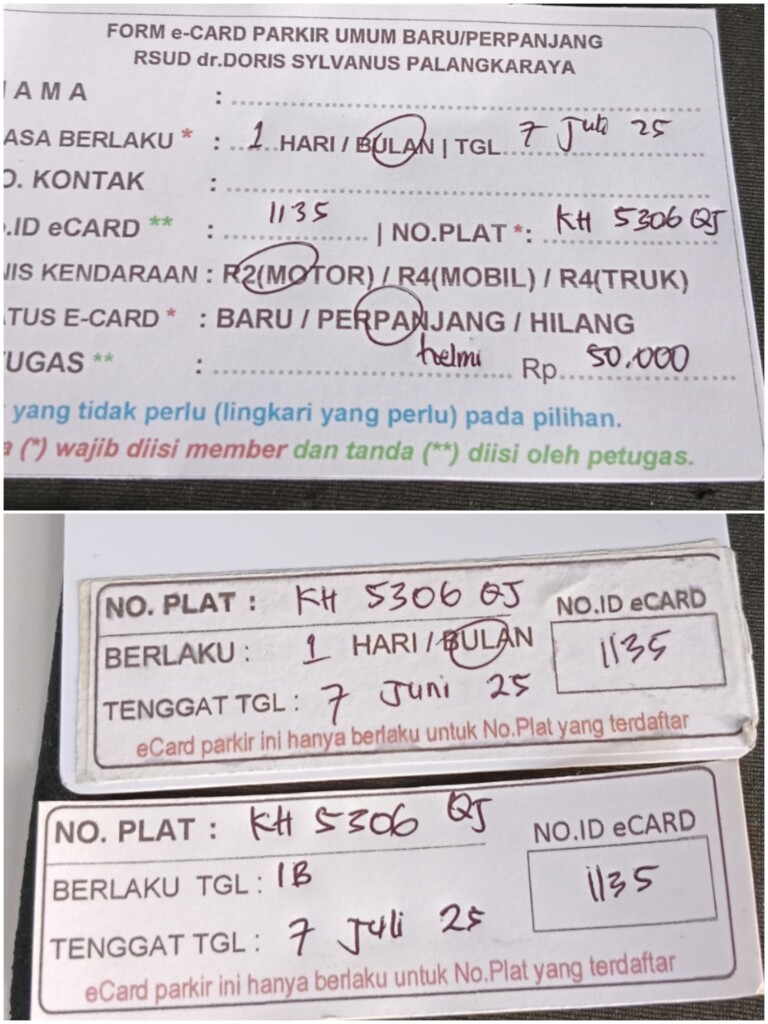 FORM e-CARD PARKIR UMUM BARU/PERPANJANG
RSUD dr.DORIS SYLVANUS PALANGKARAYA
AMA :
ASA BERLAKU * : 1 HARI / BULAN | TGL 7 Juli 25
O. KONTAK :
.ID eCARD ** : 1135 | NO.PLAT *: KH 5306 QJ
NIS KENDARAAN : R2(MOTOR) / R4(MOBIL) / R4(TRUK)
TUS E-CARD * : BARU / PERPANJANG / HILANG
UGAS ** : helmi Rp. 50.000
yang tidak perlu (lingkari yang perlu) pada pilihan.
a (*) wajib diisi member dan tanda (**) diisi oleh petugas.
NO. PLAT : KH 5306 QJ
NO.ID eCARD
BERLAKU : 1 HARI / BULAN
1135
TENGGAT TGL : 7 Juni 25
eCard parkir ini hanya berlaku untuk No.Plat yang terdaftar
NO. PLAT : KH 5306 QJ
NO.ID eCARD
BERLAKU TGL : 1B
1135
TENGGAT TGL : 7 Juli 25
eCard parkir ini hanya berlaku untuk No.Plat yang terdaftar